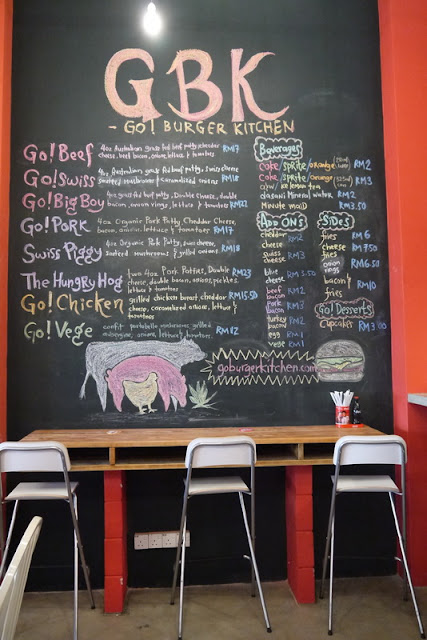 GBK
- GO! BURGER KITCHEN -
Go! Beef 4oz Australian grass fed beef patty, cheddar RM17
cheese, beef bacon, onion, lettuce & tomatoes
Go! Swiss 4oz Australian grass fed beef patty, Swiss cheese
Sauteed mushrooms & caramelised onions RM18
Go! Big Boy grass fed beef patty, Double cheese, double
bacon, onion rings, lettuce & tomatoes RM22
Go! Pork 4oz Organic Pork Patty Cheddar Cheese,
bacon, onion, lettuce & tomatoes RM17
Swiss Piggy 4oz Organic Pork Patty, Swiss cheese,
Sauteed mushrooms & grilled onions RM18
The Hungry Hog two 4oz Pork Patties, Double RM23
cheese, double bacon, onions, pickles
lettuce & tomatoes
Go! Chicken grilled chicken breast, cheddar RM15.50
cheese, caramelized onion, lettuce &
tomatoes
Go! Vege confit portobello mushrooms, grilled RM12
aubergine, onions, lettuce & tomatoes
Beverages
Coke/Sprite/orange RM2
Coke/Sprite/orange (325ml can) RM3
ice lemon tea
dasani Mineral water RM2
Minute maid RM3.50
ADD ONS
cheddar cheese RM2
swiss cheese RM3
blue cheese RM3.50
beef bacon RM2
pork bacon RM3
turkey bacon RM2
egg RM1
vege RM1
Sides
fries RM6
cheese fries RM7.50
onion rings RM6.50
bacon fries RM10
Go! Desserts
Cupcakes RM3
goburgerkitchen.com